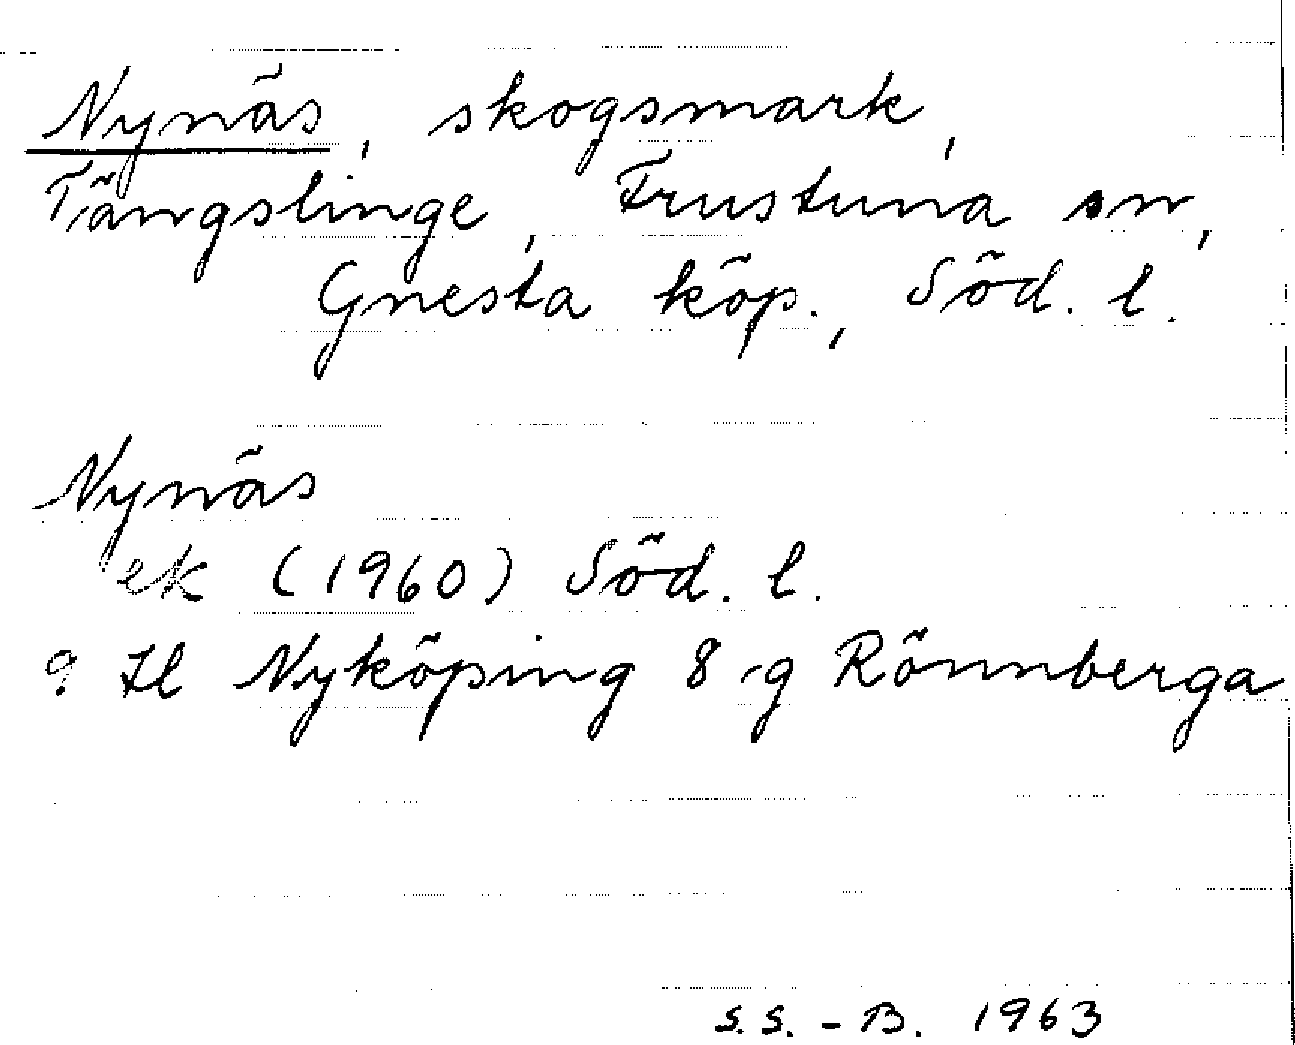 Nynäs, skogsmark,
Tängslinge, Frustuna sn,
Gnesta köp., Söd. l.
Nynäs
ek (1960) Söd. l.
9 Il Nyköping 8 g Rönnberga
S.S. - B. 1963